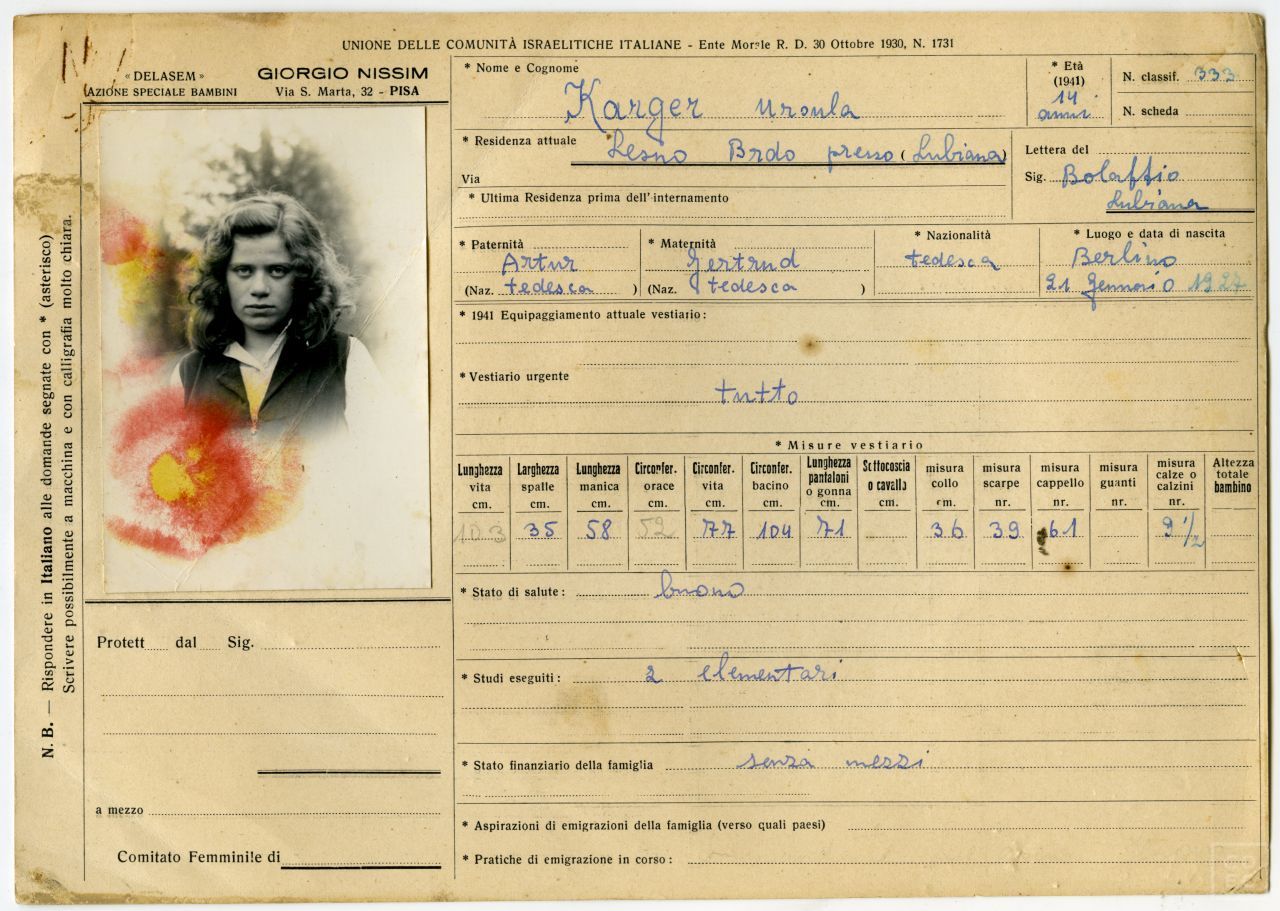 UNIONE DELLE COMUNITÀ ISRAELITICHE ITALIANE - Ente Morale R. D. 30 Ottobre 1930, N. 1731
« DELASEM »
AZIONE SPECIALE BAMBINI
GIORGIO NISSIM
Via S. Marta, 32 - PISA
* Nome e Cognome
Karger Ursula
* Età
(1941)
14
anni
N. classif. 333
N. scheda
* Residenza attuale Lesno Brdo presso (Lubiana)
Via
* Ultima Residenza prima dell'internamento
Lettera del
Sig. Bolaffio
Lubiana
* Paternità
Artur
(Naz. tedesca )
* Maternità
Gertrud
(Naz. tedesca )
* Nazionalità
tedesca
* Luogo e data di nascita
Berlino
21 Gennaio 1927
* 1941 Equipaggiamento attuale vestiario:
* Vestiario urgente
tutto
* Misure vestiario
Lunghezza vita cm. 103
Larghezza spalle cm. 35
Lunghezza manica cm. 58
Circonfer. orace cm. 52
Circonfer. vita cm. 77
Circonfer. bacino cm. 104
Lunghezza pantaloni o gonna cm. 71
Sottocoscia o cavallo cm.
misura collo cm. 36
misura scarpe nr. 39
misura cappello nr. 61
misura guanti nr.
misura calze o calzini nr. 9 1/2
Altezza totale bambino
* Stato di salute: buono
* Studi eseguiti: 2 elementari
* Stato finanziario della famiglia senza mezzi
* Aspirazioni di emigrazioni della famiglia (verso quali paesi)
* Pratiche di emigrazione in corso:
Protett dal Sig.
a mezzo
Comitato Femminile di
N. B. — Rispondere in Italiano alle domande segnate con * (asterisco)
Scrivere possibilmente a macchina e con calligrafia molto chiara.